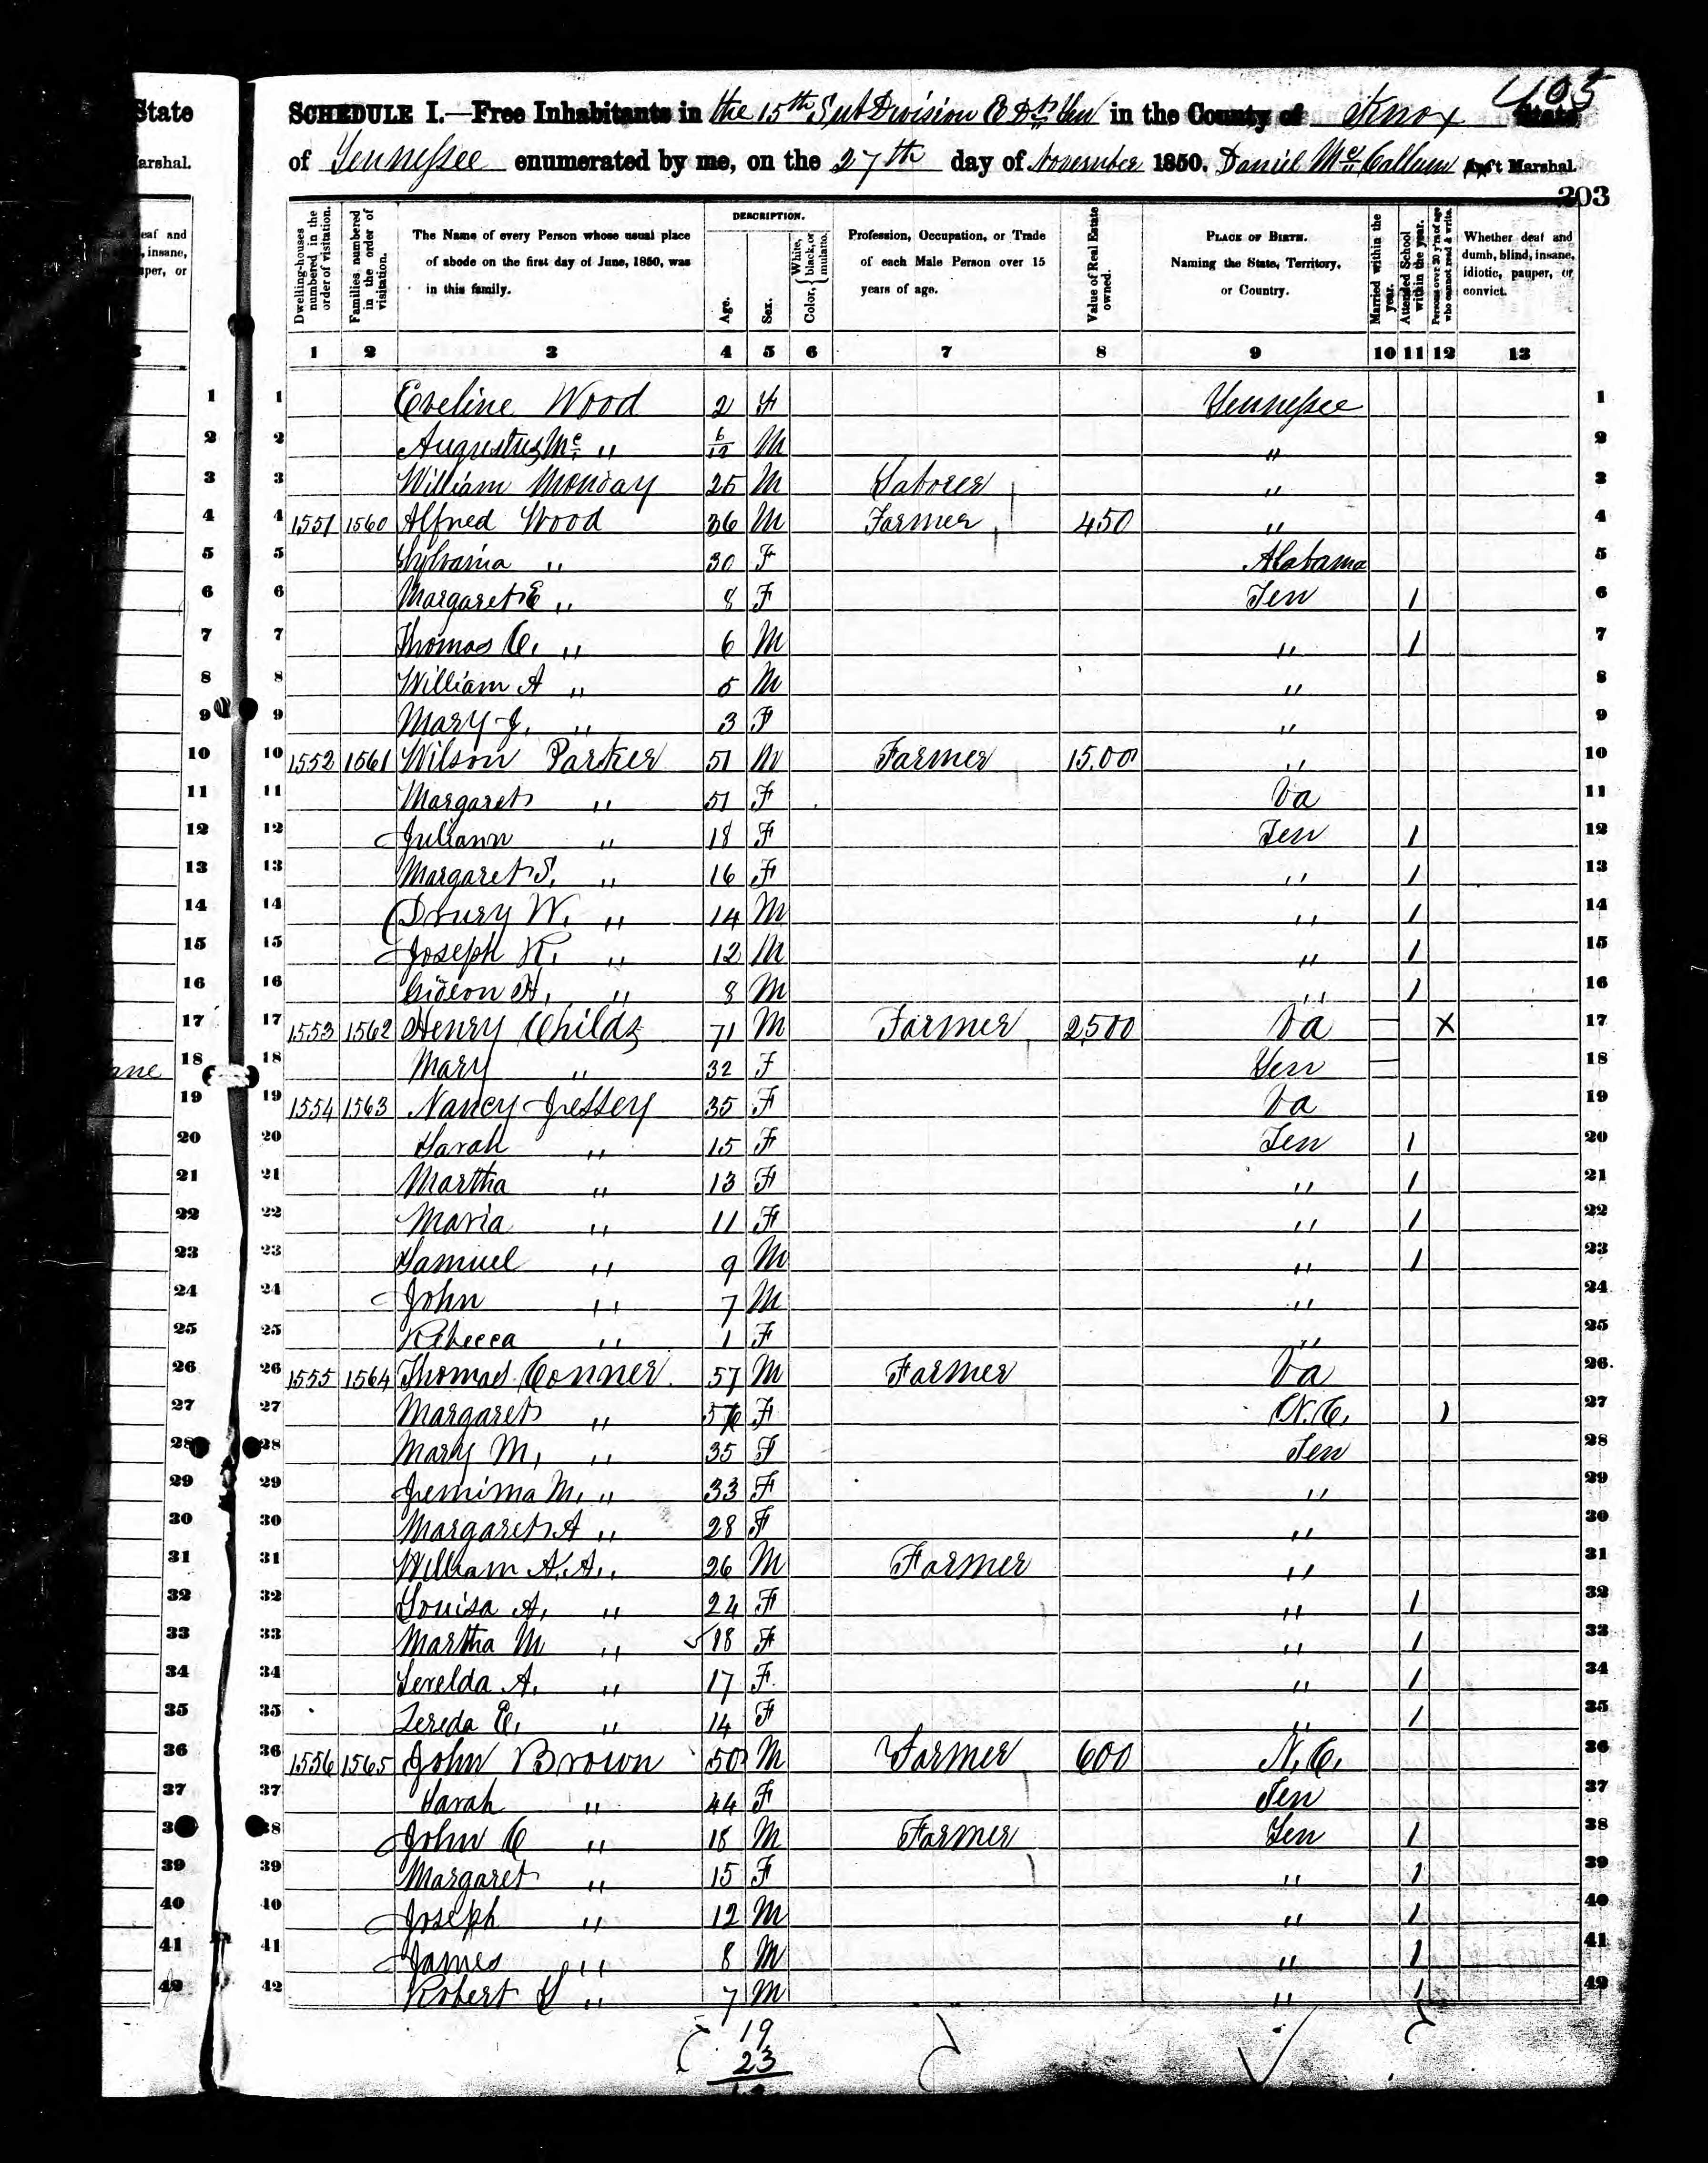 State
arshal.
eaf and
, insane,
uper, or
ane
405
SCHEDULE I.—Free Inhabitants in the 15th SubDivision E. D. Ten in the County of Knox State
of Tennessee enumerated by me, on the 27th day of November 1850. Daniel McCallum Ass't Marshal.
203
Dwelling-houses numbered in the order of visitation.
Families numbered in the order of visitation.
The Name of every Person whose usual place of abode on the first day of June, 1850, was in this family.
DESCRIPTION.
Age.
Sex.
Color, { White, black, or mulatto.
Profession, Occupation, or Trade of each Male Person over 15 years of age.
Value of Real Estate owned.
PLACE OF BIRTH. Naming the State, Territory, or Country.
Married within the year.
Attended School within the year.
Persons over 20 y'rs of age who cannot read & write.
Whether deaf and dumb, blind, insane, idiotic, pauper, or convict.
1 2 3 4 5 6 7 8 9 10 11 12 13
1 Eveline Wood 2 F Tennessee 1
2 Augustus Mc " 6/12 M " 2
3 William Monday 25 M Laborer " 3
4 1551 1560 Alfred Wood 36 M Farmer 450 " 4
5 Sylvania " 30 F Alabama 5
6 Margaret E " 8 F Ten 1 6
7 Thomas C. " 6 M " 1 7
8 William A " 5 M " 8
9 Mary J. " 3 F " 9
10 1552 1561 Wilson Parker 51 M Farmer 15.00 " 10
11 Margaret " 51 F Va 11
12 Juliann " 18 F Ten 1 12
13 Margaret S. " 16 F " 1 13
14 Drury W. " 14 M " 1 14
15 Joseph K. " 12 M " 1 15
16 Gideon H. " 8 M " 1 16
17 1553 1562 Henry Childs 71 M Farmer 2,500 Va — X 17
18 Mary " 32 F Ten — 18
19 1554 1563 Nancy Jessey 35 F Va 19
20 Sarah " 15 F Ten 1 20
21 Martha " 13 F " 1 21
22 Maria " 11 F " 1 22
23 Samuel " 9 M " 1 23
24 John " 7 M " 24
25 Rebecca " 1 F " 25
26 1555 1564 Thomas Conner 57 M Farmer Va 26
27 Margaret " F N.C. 1 27
28 Mary M. " 35 F Ten 28
29 Jemima M. " 33 F " 29
30 Margaret A " 28 F " 30
31 William A. A. " 26 M Farmer " 31
32 Louisa A. " 24 F " 1 32
33 Martha M " 18 F " 1 33
34 Serelda A. " 17 F. " 1 34
35 Zereda E. " 14 F " 1 35
36 1556 1565 John Brown 50 M Farmer 600 N.C. 36
37 Sarah " 44 F Ten 37
38 John C " 18 M Farmer Ten 1 38
39 Margaret " 15 F " 1 39
40 Joseph " 12 M " 1 40
41 James " 8 M " 1 41
42 Robert " 7 M " 1 42
19
23